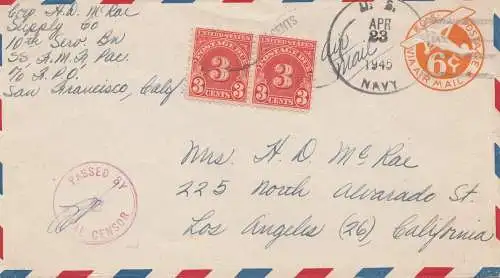 Corp H.D. McRae
Supply Co
10th Serv. Bn
SS, F.M.F. Pac.
% F.P.O.
San Francisco, Calif
UNITED STATES
POSTAGE DUE
3
3 CENTS 3
UNITED STATES
POSTAGE DUE
3
3 CENTS 3
CENTS
Air
Mail
U. S.
APR
23
1945
NAVY
6¢
VIA AIR MAIL
PASSED BY
NAVAL CENSOR
Mrs. H. D. McRae
225 North Alvarado St.
Los Angeles (26) California